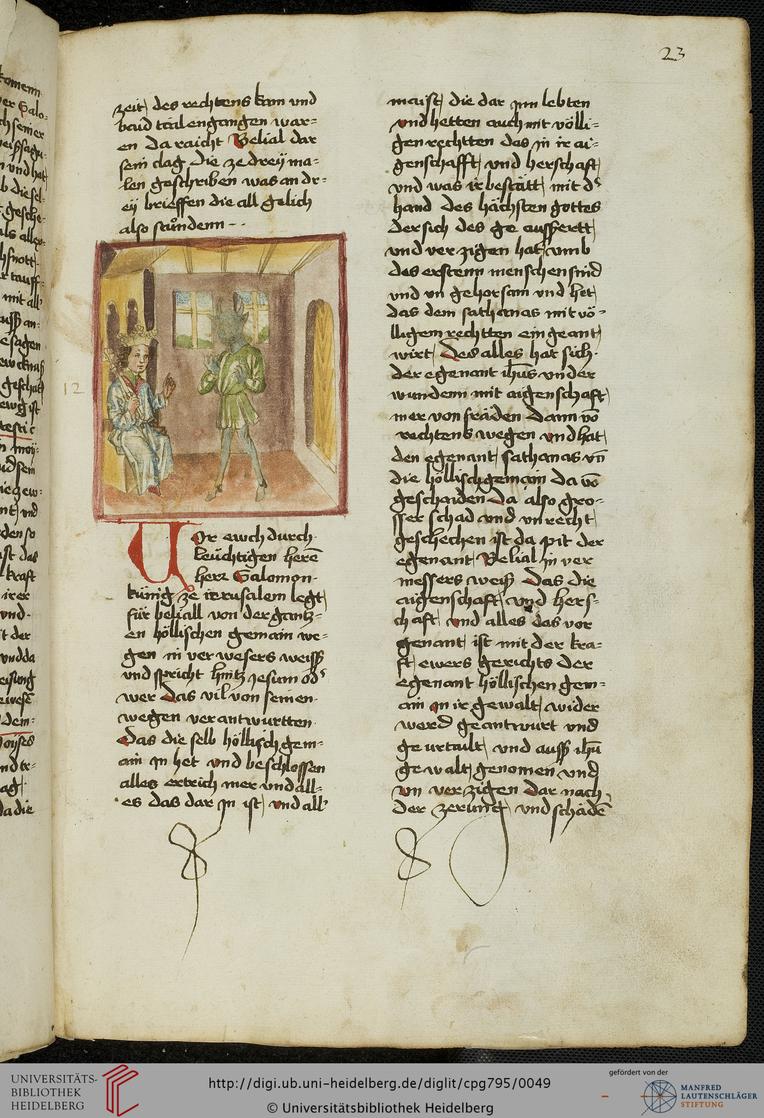 23
zeit des rechtens kam und
baid tail engangen war-
en Da raicht Belial dar
sein clag die ze dreÿ ma-
len geschriben was an dr-
eÿ brieffen die all gelich
also stůndenn
12
Vor ewch durch
leuchtigen herē
herr Salomon
künig ze irrusalem legt
für belial von der gantz-
en höllischen gemain we-
gen in verwesers weiß
und spricht hintz jesum
wer Das vil von seinen
wegen verantwurtten
Das die selb höllisch gem-
ain jn het und beschlossen
alles ertrich mer und all-
es das dar jn ist und all
maist die dar jnn lebten
und hetten auch mit völli-
gen rechtten das in ir ai-
genschafft und herschaft
und was ir bestätt mit
hand des höchsten gottes
der sich des ge
und verzigen hat umb
des erstenn menschen sünd
und un gehorsam und het
das dem sathanas mit vö-
lligem rechtten ein geant
wirt Des alles hat sich
der egenant ihus under
wundenn mit aigenschaft
mer von fräden dann vō
rechtens wegen und hat
den egenant sathanas vn̄
die höllisch gemain da vō
geschaiden Da also gro-
sser schad und unrecht
geschechen ist da pit der
egenant Belial in ver
wessers weiß Das die
aigenschaft und hers-
chaft und alles das vor
genant ist mit der kra-
ft ewers gerichts der
egenant höllischen gem-
ain in ir gewalt wider
werd geantwurt und
geurtailt und auß ihu
gewalt genomen und
un verzigen dar nach
der zerung und schädē
UNIVERSITÄTS-
BIBLIOTHEK
HEIDELBERG
http://digi.ub.uni-heidelberg.de/diglit/cpg795/0049
© Universitätsbibliothek Heidelberg
gefördert von der
MANFRED
LAUTENSCHLÄGER
STIFTUNG